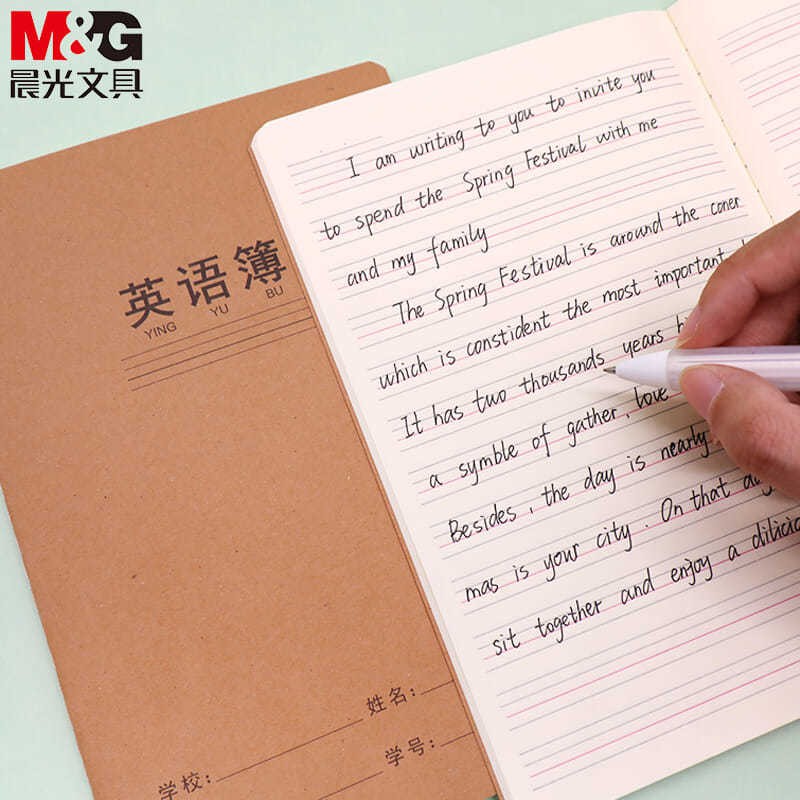 M&G
晨光文具
英语簿
YING YU BU
姓名:
学校:
学号:
I am writing to you to invite you
to spend the Spring Festival with me
and my family
The Spring Festival is around the coner
which is constident the most important
It has two thousands years
a symble of gather, love
Besides, the day is nearly
mas is your city. On that day
sit together and enjoy a